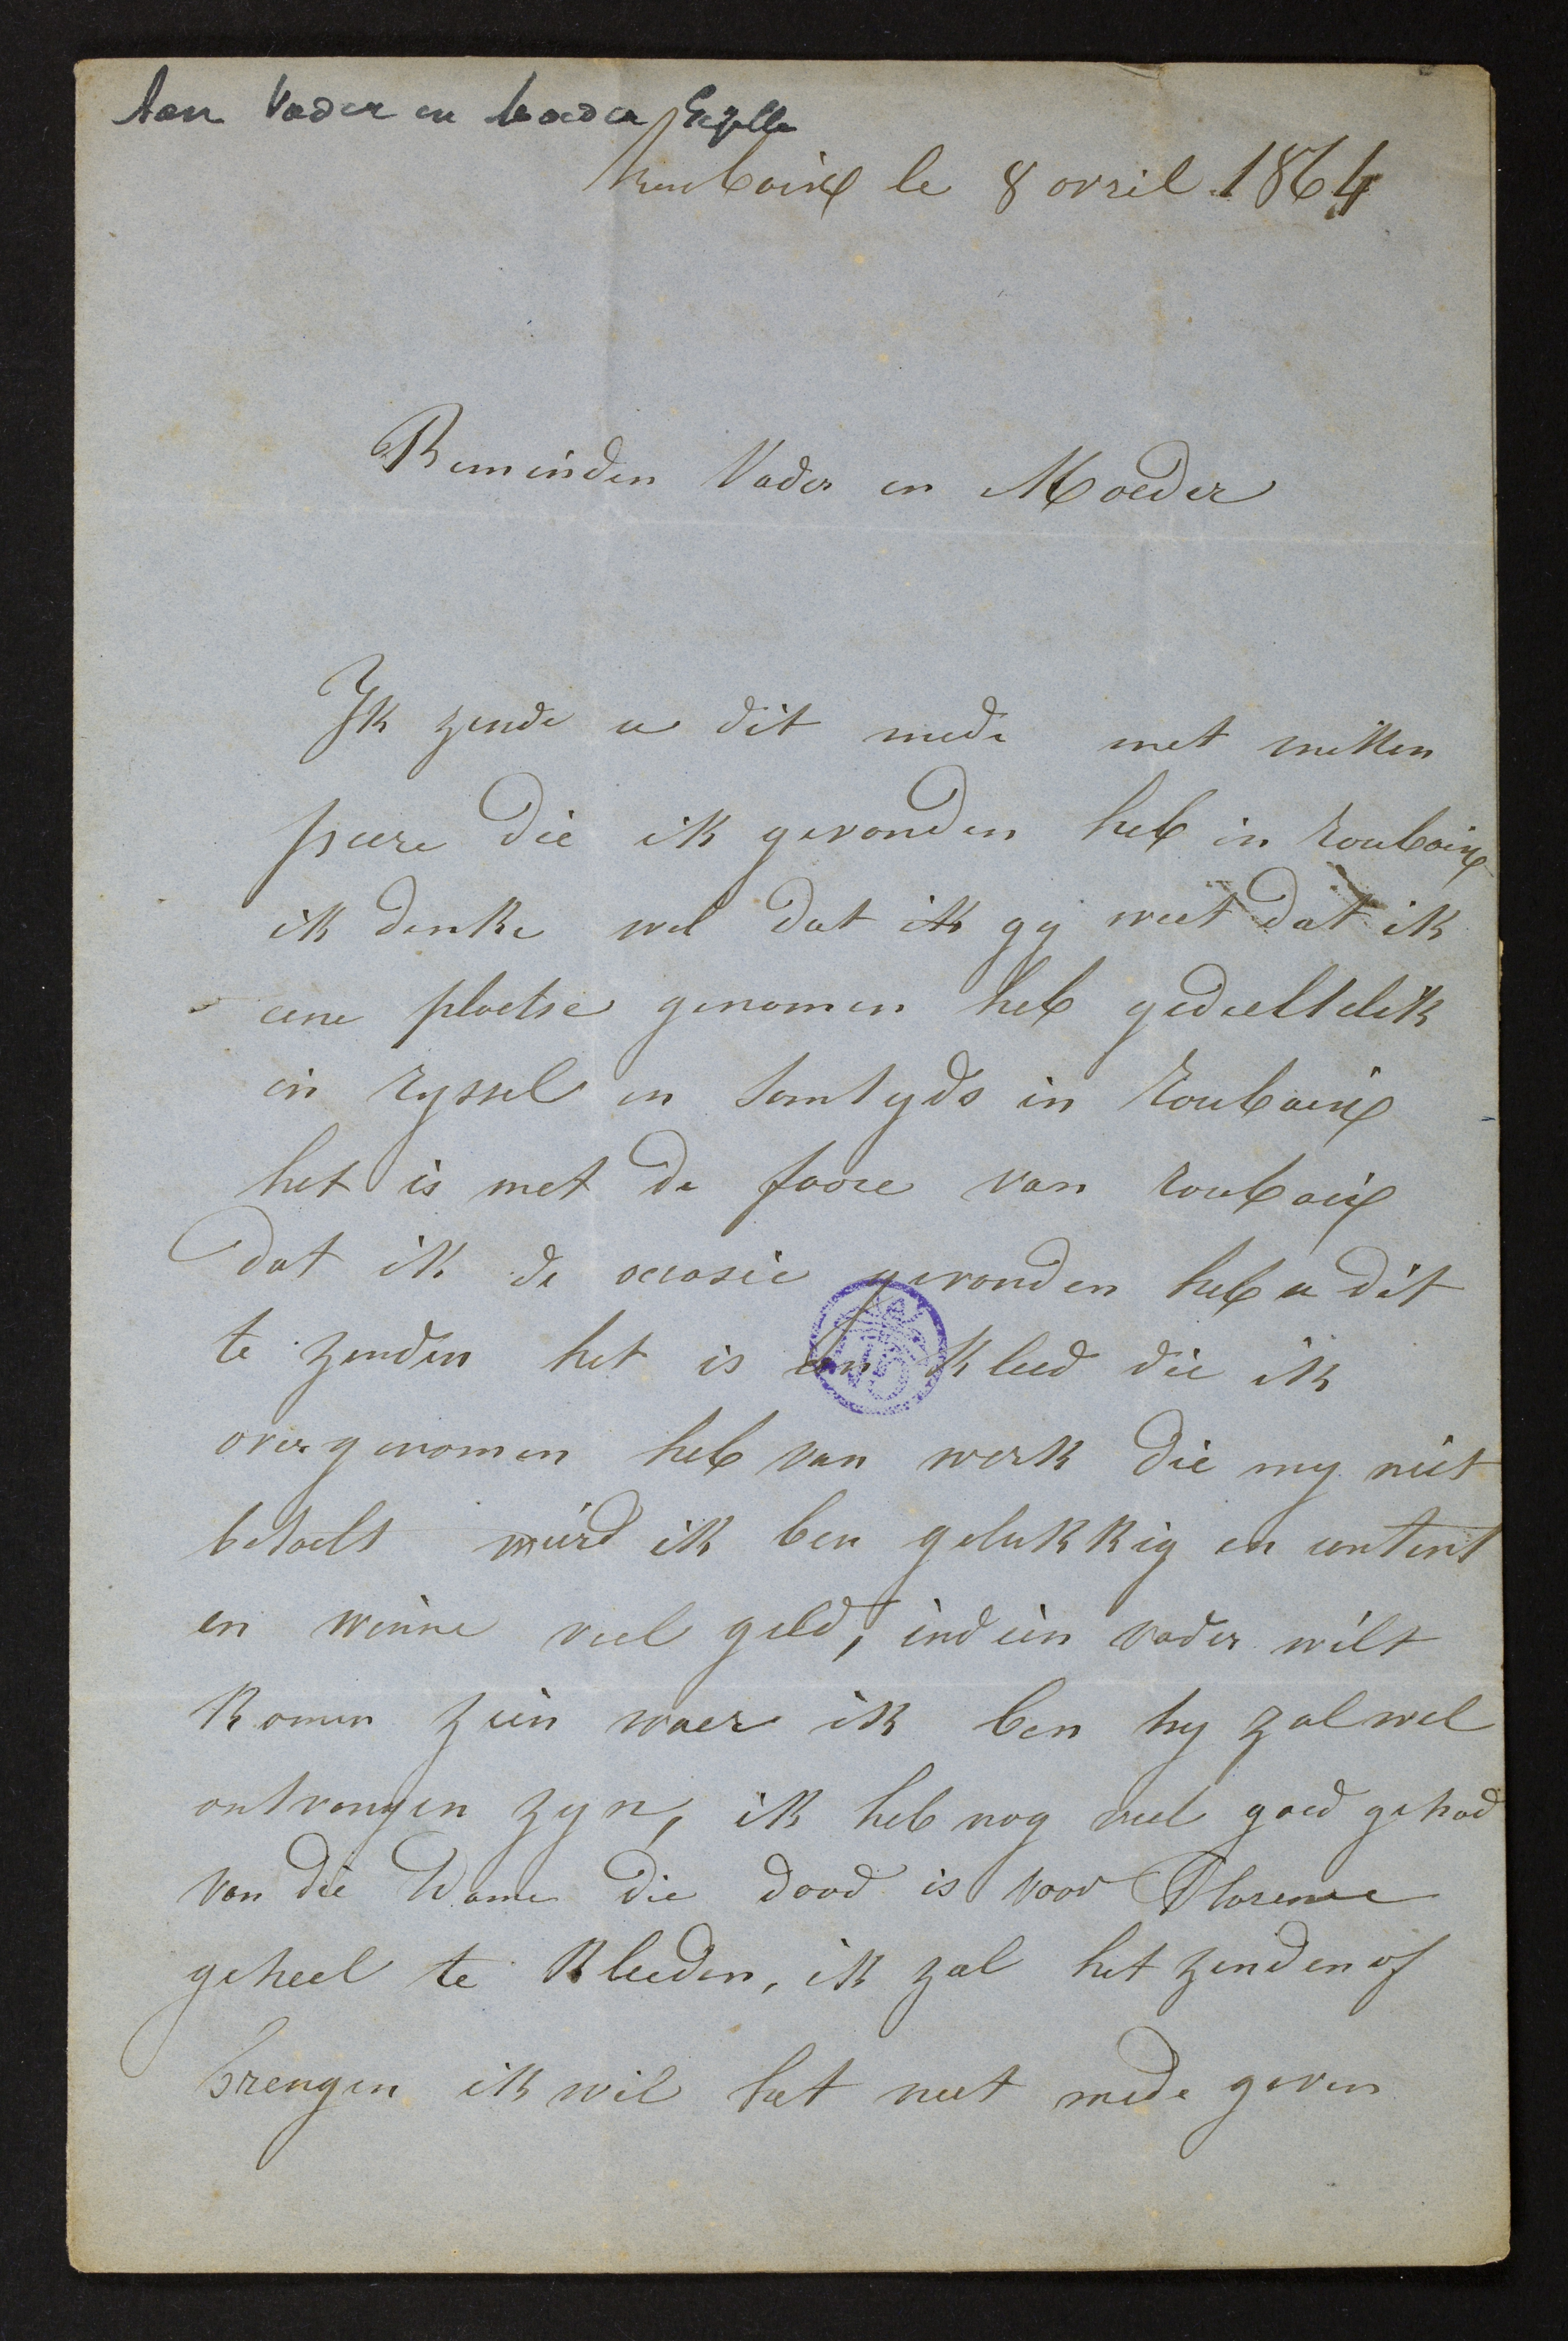 Aan Vader en Moeder Gezelle
Roubaix le 8 avril 1864
Beminden Vader en Moeder
Ik zende u dit mede met mitten
peere die ik gevonden heb in roubaix
ik denke wel dat ik gy weet dat ik
eene plaetse genomen heb gedeeltelik
in ryssel en somtyds in roubaix
het is met de foore van roubaix
dat ik de occasie gevonden heb u dit
te zenden het is een kleed die ik
overgenomen heb van werk die my niet
betaelt wierd ik ben gelukkig en content
en winne veel geld, indien vader wilt
komen zien waer ik ben hy zal wel
ontvangen zyn, ik heb nog veel goed gehad
van die Dame die dood is voor Florence
geheel te kleeden, ik zal het zenden of
brengen ik wil het niet mede geven